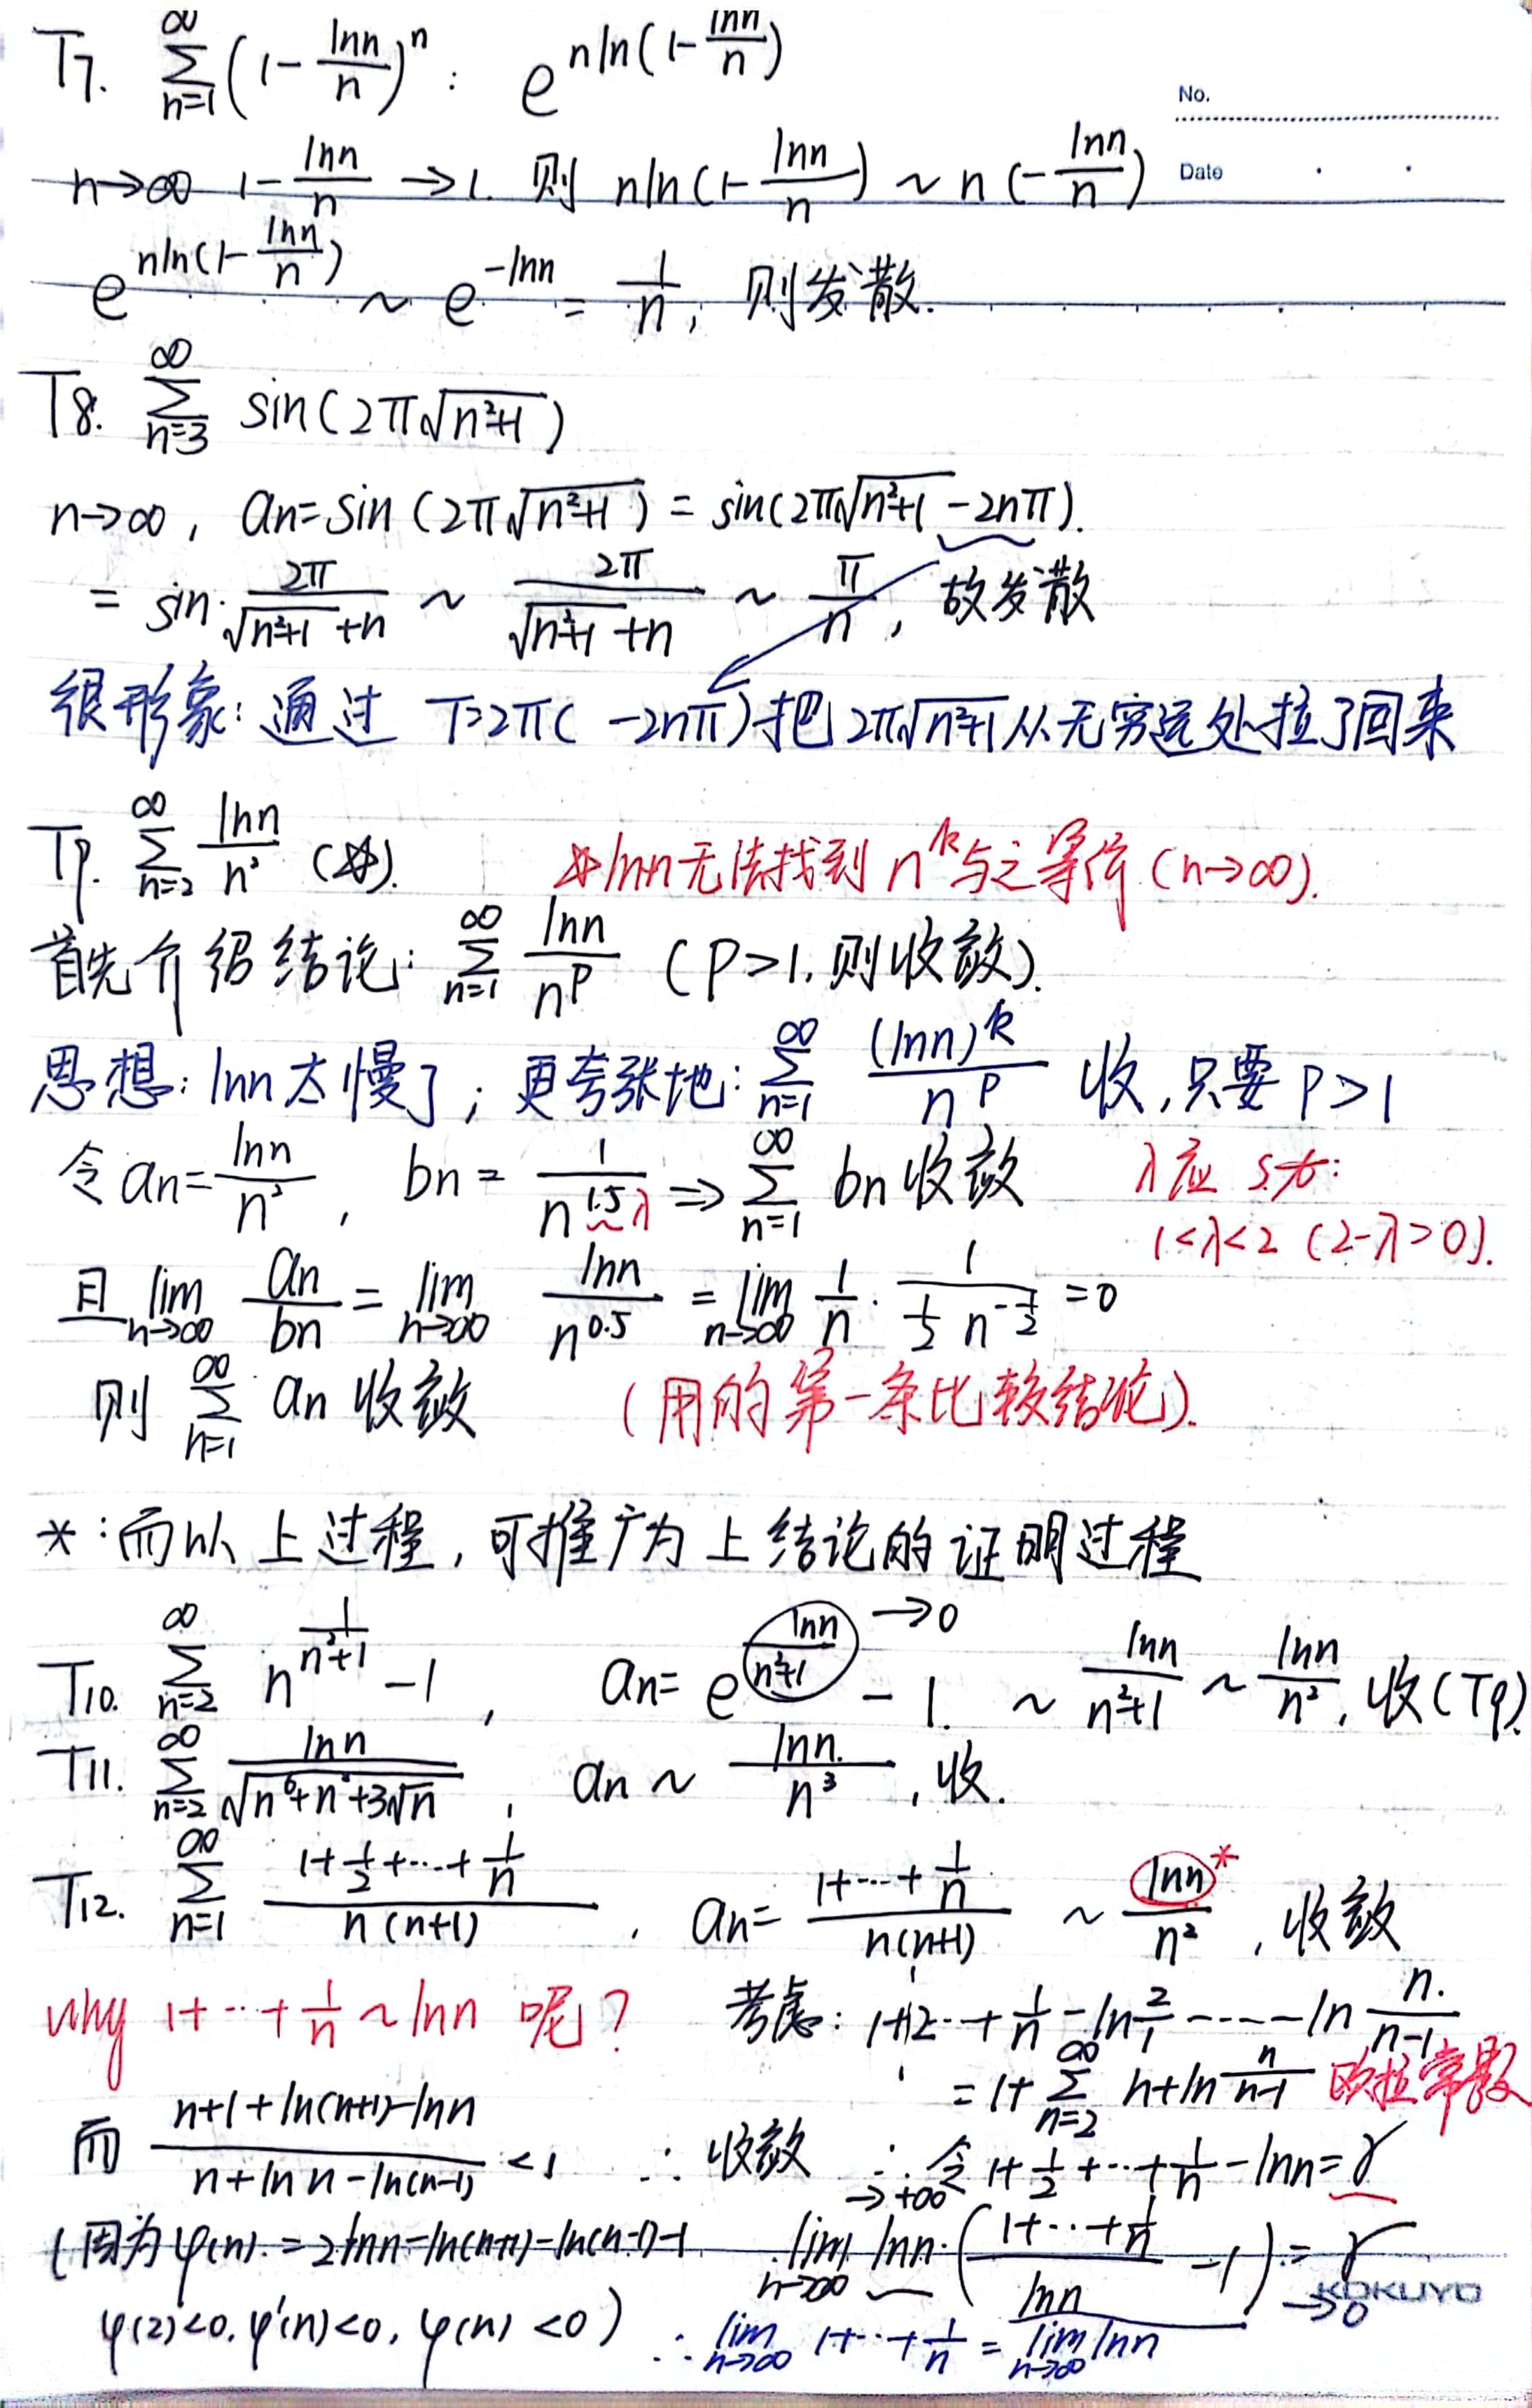 T7. $\sum_{n=1}^{\infty}(1-\frac{\ln n}{n})^n$: $e^{n\ln(1-\frac{\ln n}{n})}$
No.
$n\to\infty$ $1-\frac{\ln n}{n}\to 1.$ 则 $n\ln(1-\frac{\ln n}{n})\sim n(-\frac{\ln n}{n})$
Date
$e^{n\ln(1-\frac{\ln n}{n})}\sim e^{-\ln n}=\frac{1}{n}$, 则发散.
T8. $\sum_{n=3}^{\infty}\sin(2\pi\sqrt{n^2+1})$
$n\to\infty$, $a_n=\sin(2\pi\sqrt{n^2+1})=\sin(2\pi\sqrt{n^2+1}-2n\pi).$
$=\sin\frac{2\pi}{\sqrt{n^2+1}+n}\sim\frac{2\pi}{\sqrt{n^2+1}+n}\sim\frac{\pi}{n}$, 故发散
很形象: 通过 $T=2\pi(-2n\pi)$ 把 $2\pi\sqrt{n^2+1}$ 从无穷远处拉了回来
T9. $\sum_{n=2}^{\infty}\frac{\ln n}{n^2}$ (※). ※ $\ln n$ 无法找到 $n^k$ 与之等价 $(n\to\infty)$.
首先介绍结论: $\sum_{n=1}^{\infty}\frac{\ln n}{n^p}$ (P>1, 则收敛).
思想: $\ln n$ 太慢了; 更夸张地: $\sum_{n=1}^{\infty}\frac{(\ln n)^k}{n^p}$ 收, 只要 P>1
令 $a_n=\frac{\ln n}{n^2}$, $b_n=\frac{1}{n^{1.5}}$ λ $\Rightarrow\sum_{n=1}^{\infty}b_n$ 收敛 λ应 s.t.:
$1<\lambda<2$ $(2-\lambda>0)$.
且 $\lim_{n\to\infty}\frac{a_n}{b_n}=\lim_{n\to\infty}\frac{\ln n}{n^{0.5}}=\lim_{n\to\infty}\frac{1}{n}\cdot\frac{1}{\frac{1}{2}n^{-\frac{1}{2}}}=0$
则 $\sum_{n=1}^{\infty}a_n$ 收敛 (用的第一条比较结论).
*: 而以上过程, 可推广为上结论的证明过程
T10. $\sum_{n=2}^{\infty}n^{\frac{1}{n^2+1}}-1$, $a_n=e^{\frac{\ln n}{n^2+1}}-1.$ →0 $\sim\frac{\ln n}{n^2+1}\sim\frac{\ln n}{n^2}$, 收(T9).
T11. $\sum_{n=2}^{\infty}\frac{\ln n}{\sqrt{n^6+n^2+3\sqrt{n}}}$, $a_n\sim\frac{\ln n}{n^3}$, 收.
T12. $\sum_{n=1}^{\infty}\frac{1+\frac{1}{2}+\cdots+\frac{1}{n}}{n(n+1)}$, $a_n=\frac{1+\cdots+\frac{1}{n}}{n(n+1)}\sim\frac{\ln n^*}{n^2}$, 收敛
why $1+\cdots+\frac{1}{n}\sim\ln n$ 呢? 考虑: $1+\frac{1}{2}\cdots+\frac{1}{n}-\ln\frac{2}{1}-\cdots-\ln\frac{n}{n-1}$
$=1+\sum_{n=2}^{\infty}n+\ln\frac{n}{n-1}$ 欧拉常数
而 $\frac{n+1+\ln(n+1)-\ln n}{n+\ln n-\ln(n-1)}<1$ ∴ 收敛 ∴ 令 $1+\frac{1}{2}+\cdots+\frac{1}{n}-\ln n=\gamma$
→+∞
(因为 $\varphi(n)=2\ln n-\ln(n+1)-\ln(n-1)-1$ $\lim_{n\to\infty}\ln n\cdot(\frac{1+\cdots+\frac{1}{n}}{\ln n}-1)=\gamma$
→0
KOKUYO
$\varphi(2)<0$, $\varphi'(n)<0$, $\varphi(n)<0$) ∴ $\lim_{n\to\infty}1+\cdots+\frac{1}{n}=\lim_{n\to\infty}\ln n$